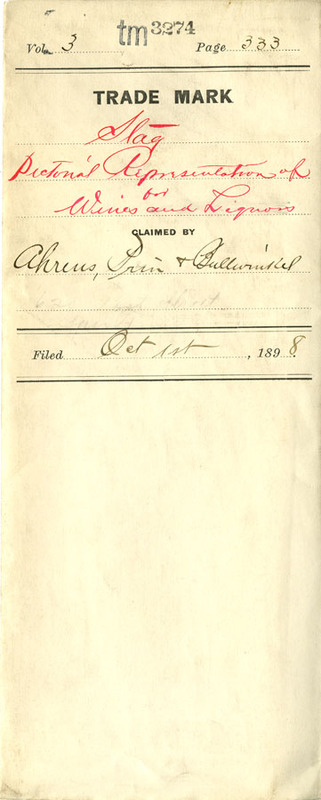 tm 3274
Vol. 3 Page 333
TRADE MARK
Stag
Pictorial Representation of
for
Wines and Liquors
CLAIMED BY
Ahrens, Pein & Bullwinkel
Filed Oct 1st, 1898.